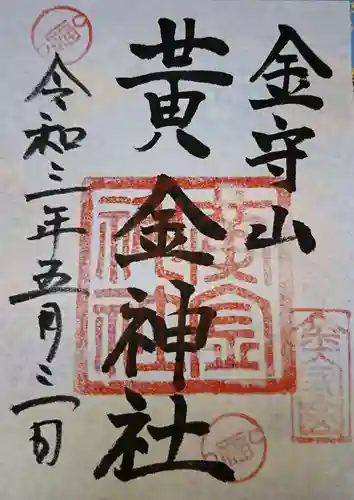 金守山
黄金神社
令和三年五月三日